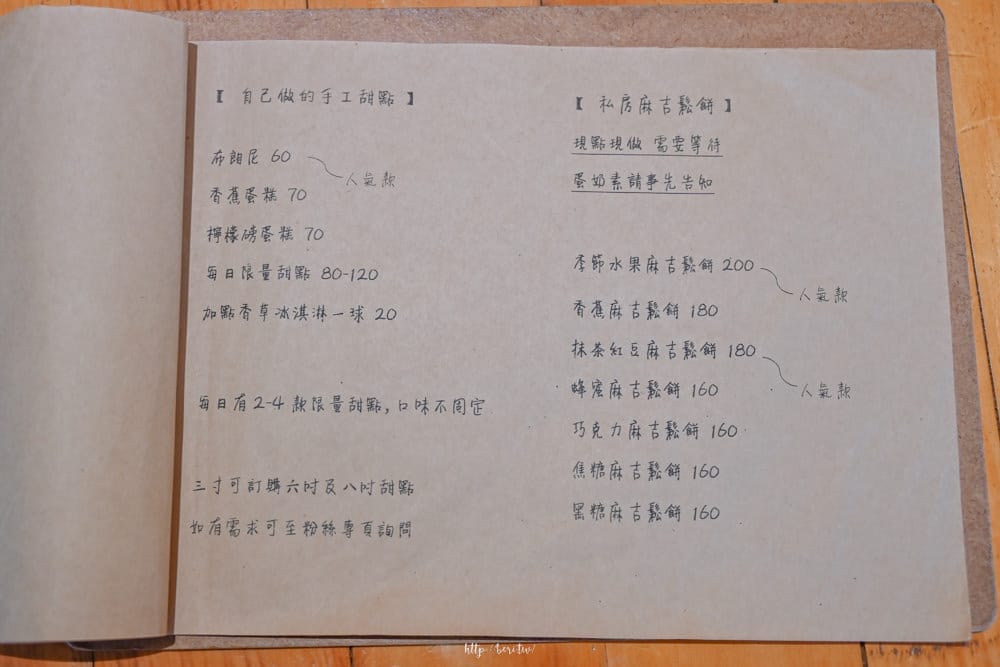 【 自己做的手工甜點 】
布朗尼 60
人氣款
香蕉蛋糕 70
檸檬磅蛋糕 70
每日限量甜點 80-120
加點香草冰淇淋一球 20
每日有2-4款限量甜點,口味不固定
三寸可訂購六吋及八吋甜點
如有需求可至粉絲專頁詢問
【 私房麻吉鬆餅 】
現點現做 需要等待
蛋奶素請事先告知
季節水果麻吉鬆餅 200
人氣款
香蕉麻吉鬆餅 180
抹茶紅豆麻吉鬆餅 180
人氣款
蜂蜜麻吉鬆餅 160
巧克力麻吉鬆餅 160
焦糖麻吉鬆餅 160
黑糖麻吉鬆餅 160
http://beri.tw/